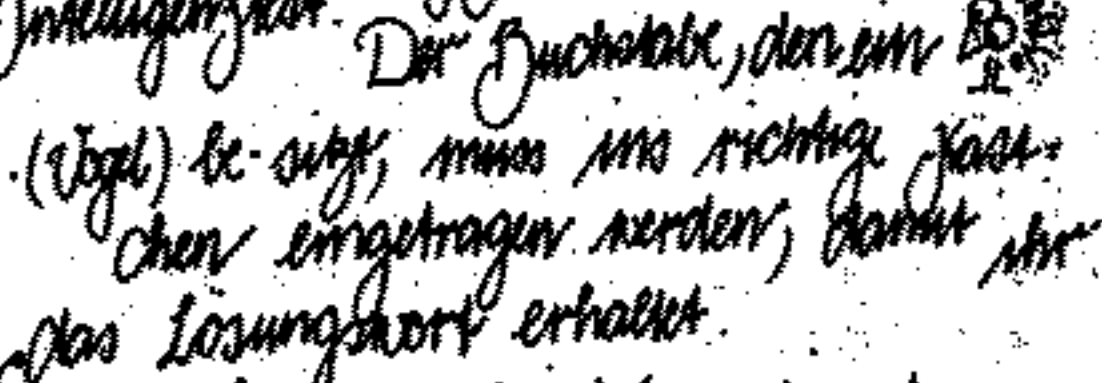 Intelligenztest.
Der Buchstabe, den ein
(Vogel) be-sitzt, muss ins richtige Käst-
chen eingetragen werden, damit ihr
das Lösungswort erhaltet.